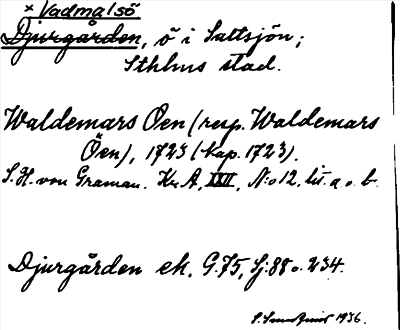 × Vadmalsö
Djurgården, ö i Saltsjön;
Sthlms stad.
Waldemars Öen (resp. Waldemars
Öen), 1723 (kap. 1723).
S. H. von Graman. Kr. A, Nio 12, lit. a o. b.
Djurgården ek. G. 75, Lj: 88 o. 234.
1936.